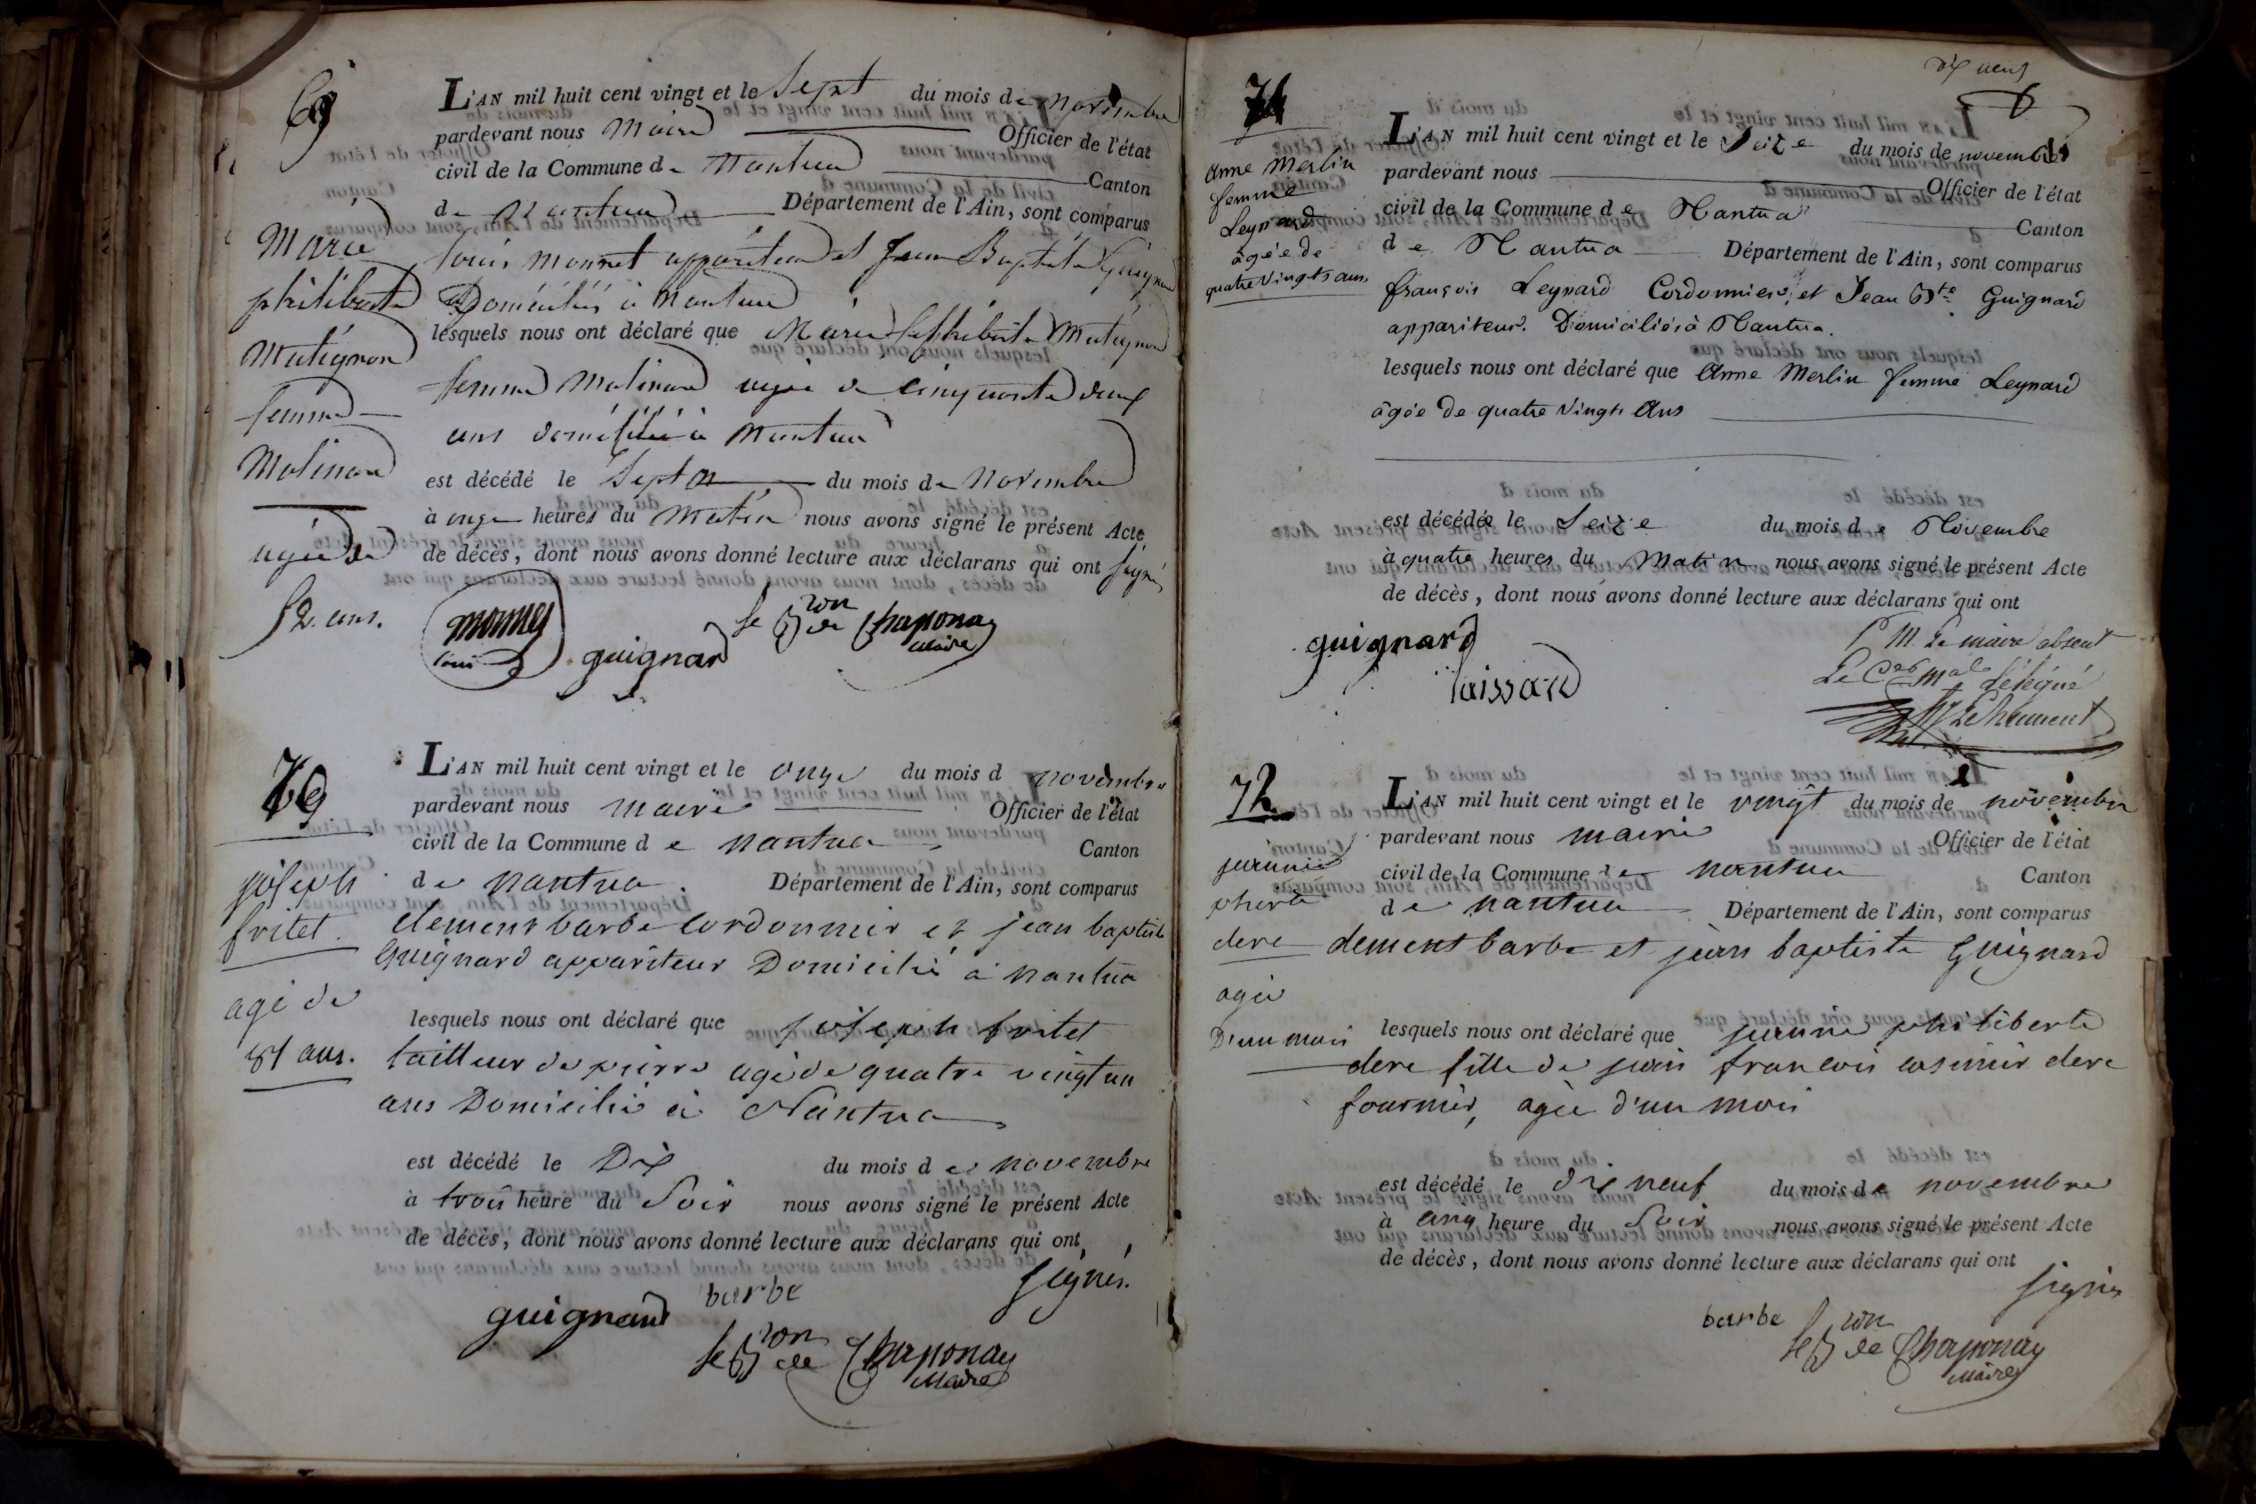 69
Marie
philiberte
Mutignon
femme
Molinard
agée de
52 ans.
L'AN mil huit cent vingt et le Sept du mois de novembre
pardevant nous Maire Officier de l'état
civil de la Commune de Nantua Canton
de Nantua Département de l'Ain, sont comparus
Louis Monnet appariteur et Jean Baptiste Guignard
Domiciliés à Nantua
lesquels nous ont déclaré que Marie philiberte Mutignon
femme Molinard agée de cinquante deux
ans domiciliée à Nantua
est décédé le Sept du mois de Novembre
à onze heures du Matin nous avons signé le présent Acte
de décès, dont nous avons donné lecture aux déclarans qui ont signés
monnet
Louis
guignard
le Bon de Chaponay
Maire
70
joseph
fritet
agé de
81 ans.
L'AN mil huit cent vingt et le onze du mois d novembre
pardevant nous maire Officier de l'état
civil de la Commune de nantua Canton
de nantua. Département de l'Ain, sont comparus
clement barbe cordonnier et jean baptiste
Guignard appariteur Domicilié à nantua
lesquels nous ont déclaré que joseph fritet
tailleur de pierre agé de quatre vingt un
ans Domicilié à Nantua
est décédé le Dix du mois de novembre
à trois heure du Soir nous avons signé le présent Acte
de décès, dont nous avons donné lecture aux déclarans qui ont
signés.
guignard barbe
le Bon de Chaponay
Maire
dix neuf
71
Anne Merlin
femme
Leynard
âgée de
quatre Vingts ans
L'AN mil huit cent vingt et le Seize du mois de novembre
pardevant nous Officier de l'état
civil de la Commune de Nantua Canton
de Nantua Département de l'Ain, sont comparus
françois Leynard Cordonnier, et Jean Bte Guignard
appariteur. Domiciliés à Nantua.
lesquels nous ont déclaré que Anne Merlin femme Leynard
âgée de quatre Vingts Ans
est décédée le Seize du mois de Novembre
à quatre heures du Matin nous avons signé le présent Acte
de décès, dont nous avons donné lecture aux déclarans qui ont
guignard
Pr M. Le maire absent
Le Cer mal délégué
72
jeanne
dere
agée
D'un mois
L'AN mil huit cent vingt et le vingt du mois de novembre
pardevant nous maire Officier de l'état
civil de la Commune de nantua Canton
de nantua Département de l'Ain, sont comparus
clement barbe et jean baptiste Guignard
lesquels nous ont déclaré que jeanne philiberte
dere fille de jean francois casimir dere
fournier, agée d'un mois
est décédé le dix neuf du mois de novembre
à cinq heure du Soir nous avons signé le présent Acte
de décès, dont nous avons donné lecture aux déclarans qui ont
signés
barbe
le Bon de Chaponay
Maire